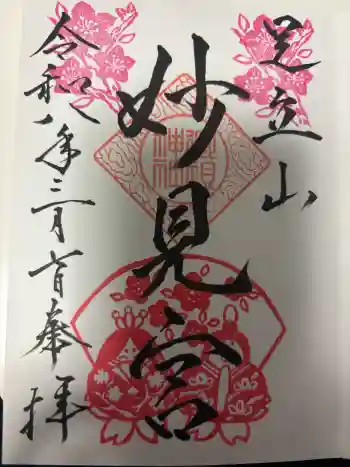 足立山
妙見宮
御祖
神社
令和八年三月 日奉拝